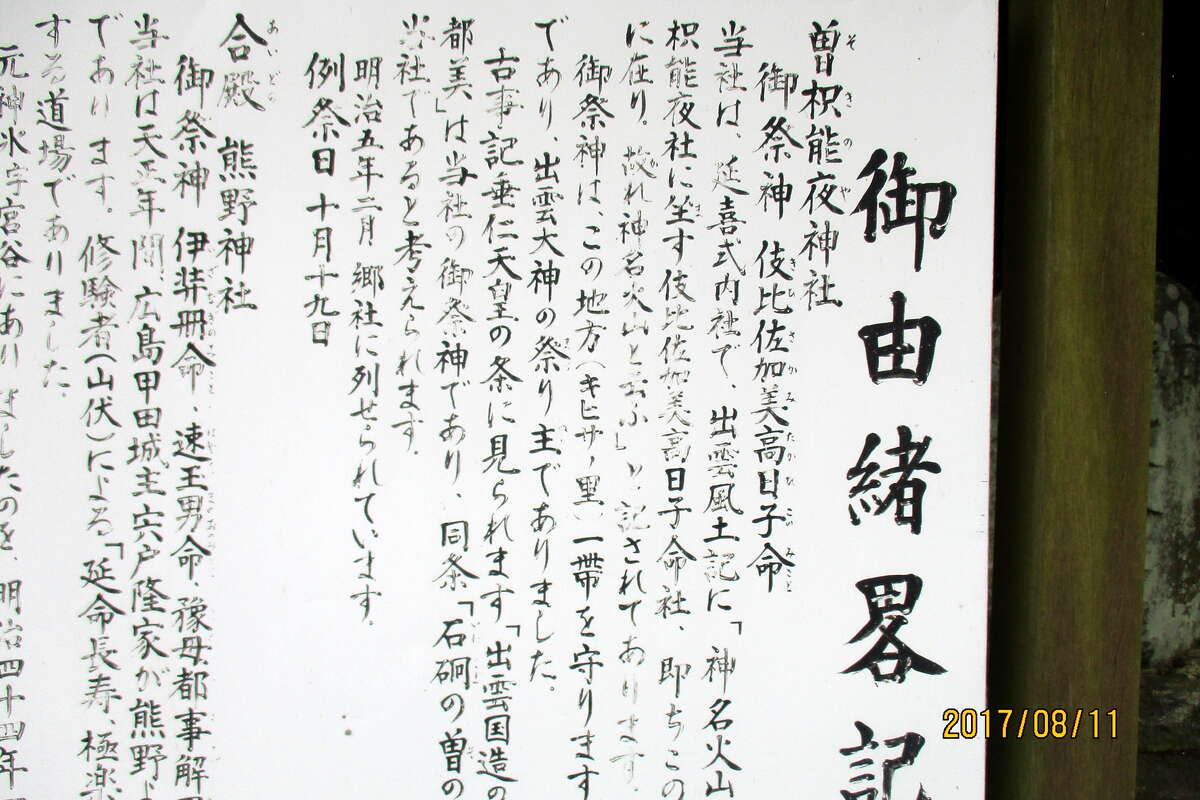 御由緒畧記
曽枳能夜神社
御祭神 伎比佐加美高日子命
当社は、延喜式内社で、出雲風土記に「神名火山
枳能夜社に坐す伎比佐加美高日子命社、即ちこの
に在り。故れ神名火山と云ふ」と記されてあります。
御祭神は、この地方(キヒサノ里)一帯を守ります
であり、出雲大神の祭り主でありました。
古事記垂仁天皇の条に見られます「出雲国造の
都美」は当社の御祭神であり、同条「石硐の曽の
当社であると考えられます。
明治五年二月 郷社に列せられています。
例祭日 十月十九日
合殿 熊野神社
御祭神 伊弉冊命、速玉男命、豫母都事解
当社は天正年間、広島甲田城主宍戸隆家が熊野よ
であります。修験者(山伏)による「延命長寿、極楽
する道場でありました。
元神氷字宮谷にありましたのを、明治四十四年
2017/08/11